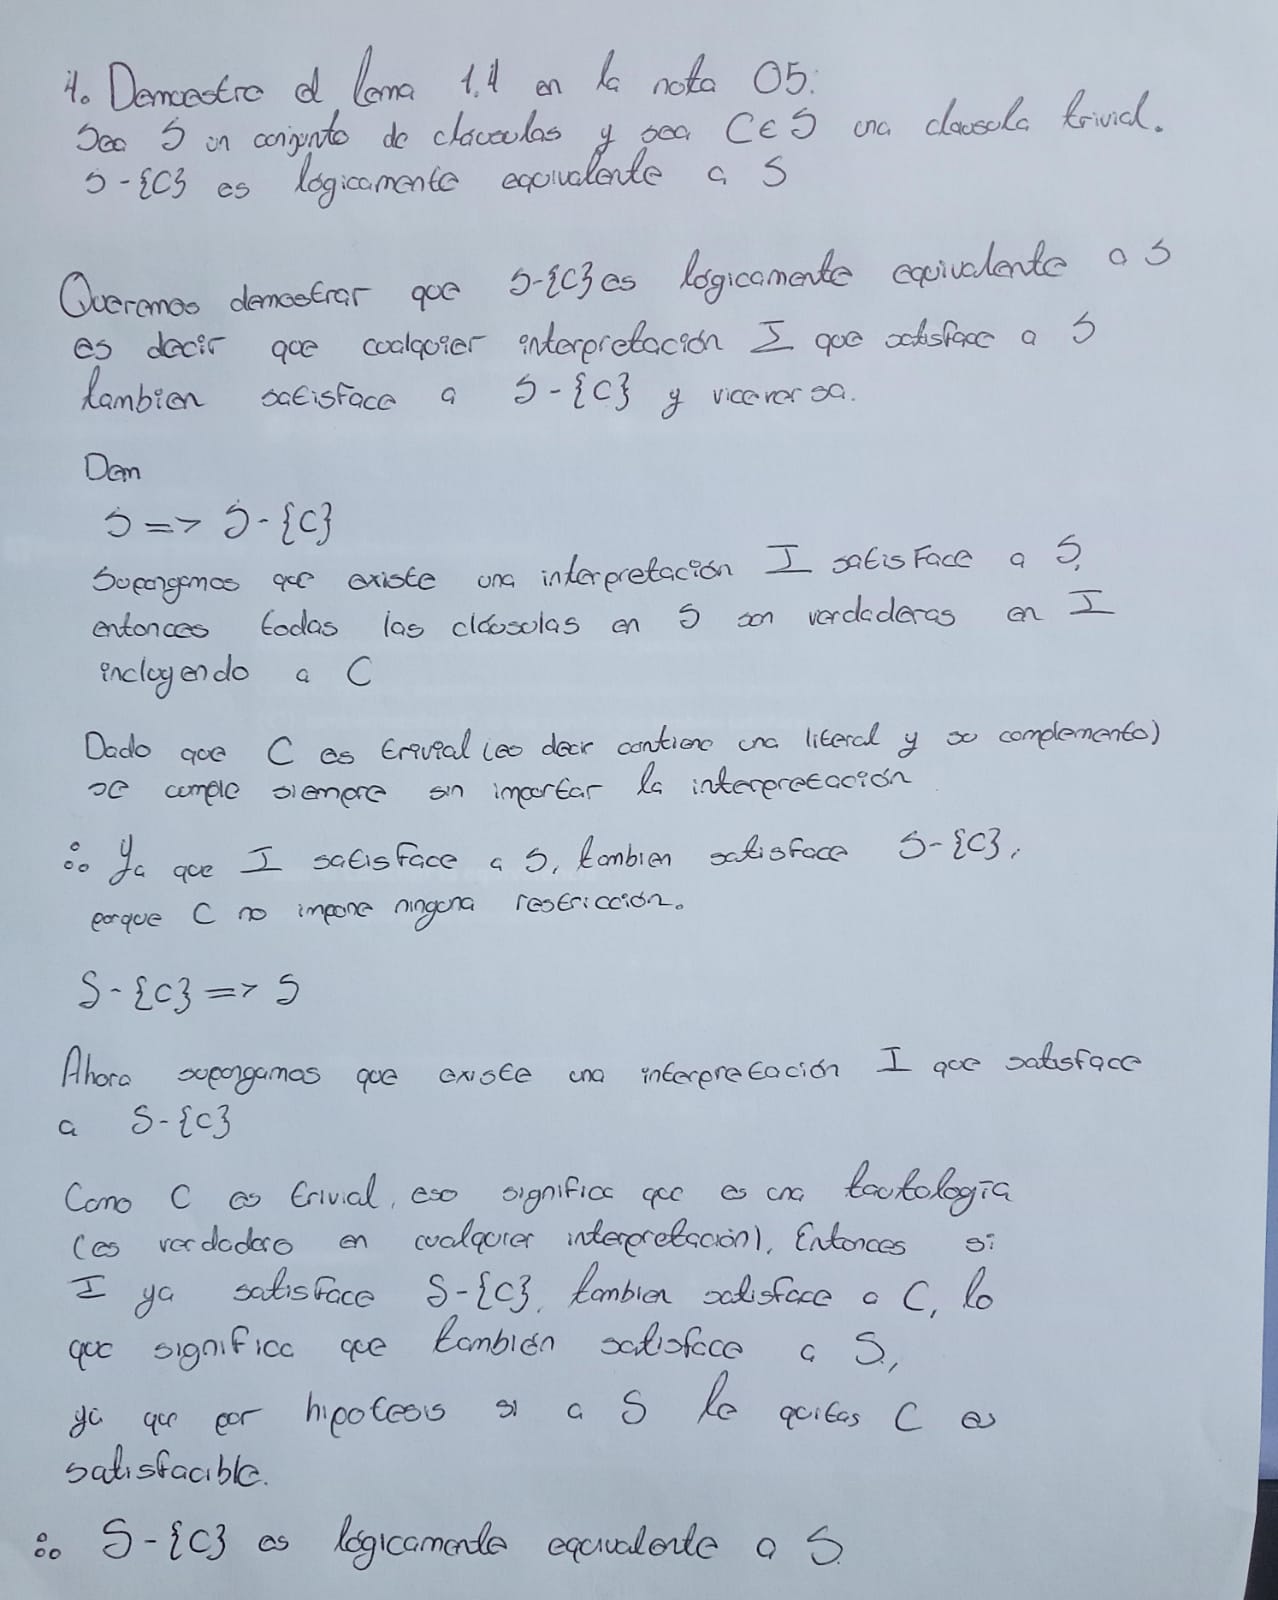 4. Demuestra el lema 1.4 en la nota 05:
Sea S un conjunto de cláusulas y sea C ∈ S una clausula trivial.
S-{C} es lógicamente equivalente a S
Queremos demostrar que S-{C} es lógicamente equivalente a S
es decir que cualquier interpretación I que satisface a S
tambien satisface a S-{C} y viceversa.
Dem
S => S-{C}
Supongamos que existe una interpretación I satisface a S,
entonces todas las cláusulas en S son verdaderas en I
incluyendo a C
Dado que C es trivial (es decir contiene una literal y su complemento)
se cumple siempre sin importar la interpretación
∴ Ya que I satisface a S, tambien satisface S-{C},
porque C no impone ninguna restricción.
S-{C} => S
Ahora supongamos que existe una interpretación I que satisface
a S-{C}
Como C es trivial, eso significa que es una tautología
(es verdadero en cualquier interpretación). Entonces si
I ya satisface S-{C}, tambien satisface a C, lo
que significa que también satisface a S,
ya que por hipotesis si a S le quitas C es
satisfacible.
∴ S-{C} es lógicamente equivalente a S.